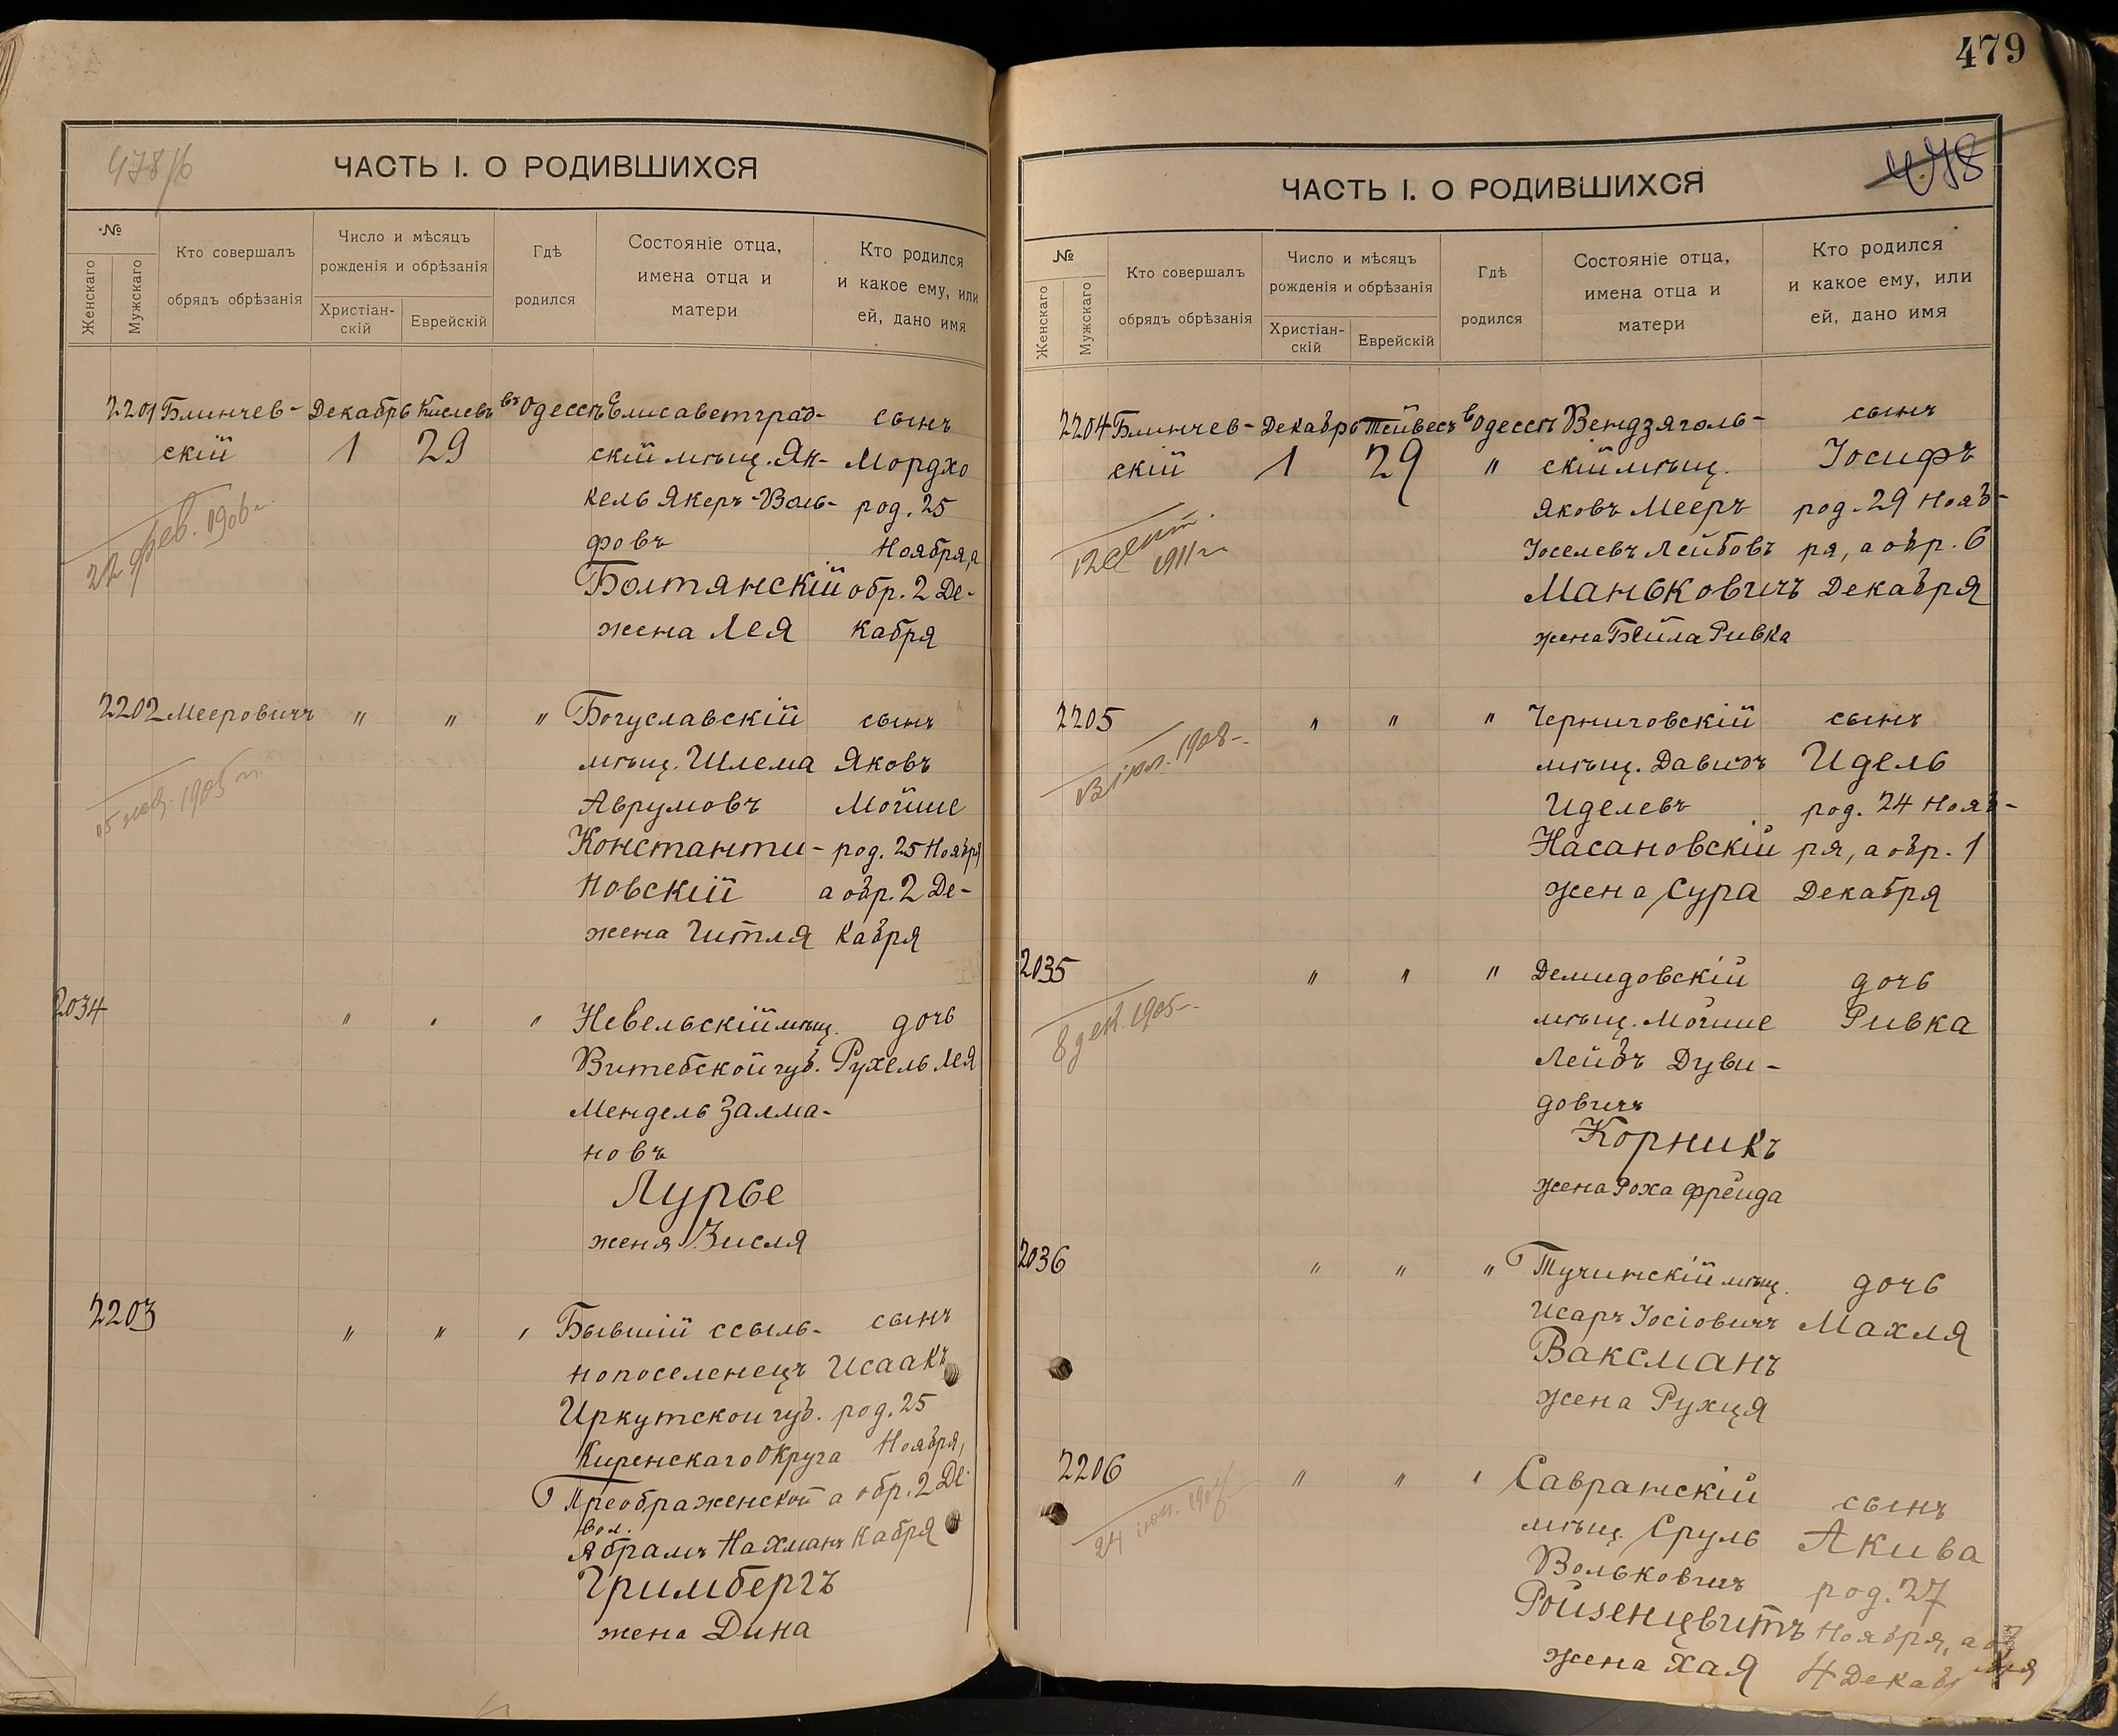 479
478/б
ЧАСТЬ I. О РОДИВШИХСЯ
№
Женскаго
Мужскаго
Кто совершалъ
обрядъ обрѣзанія
Число и мѣсяцъ
рожденія и обрѣзанія
Христіан-
скій
Еврейскій
Гдѣ
родился
Состояніе отца,
имена отца и
матери
Кто родился
и какое ему, или
ей, дано имя
2201 Блинчев- Декабрь Кислевъ въ Одессѣ Елисаветград- сынъ
скій 1 29 скій мѣщ. Ян- Мордхо
кель Якеръ-Воль- род. 25
фовъ Ноября, а
Болтянскій обр. 2 Де-
жена Лея кабря
22 фев. 1906 г.
2202 Мееровичъ " " " Богуславскій сынъ
мѣщ. Шлема Яковъ
Аврумовъ Мойше
Константи- род. 25 Ноября
новскій а обр. 2 Де-
жена Гитля кабря
1905 г.
2034 " " " Невельскій мѣщ. дочь
Витебской губ. Рухель Лея
Мендель Залма-
новъ
Лурье
жена Зисля
2203 " " " Бывшій ссыль- сынъ
нопоселенецъ Исаакъ
Иркутской губ. род. 25
Киренскаго округа Ноября,
Преображенской а обр. 2 Де-
вол.
Абрамъ Нахманъ кабря
Гримбергъ
жена Дина
478
ЧАСТЬ I. О РОДИВШИХСЯ
№
Женскаго
Мужскаго
Кто совершалъ
обрядъ обрѣзанія
Число и мѣсяцъ
рожденія и обрѣзанія
Христіан-
скій
Еврейскій
Гдѣ
родился
Состояніе отца,
имена отца и
матери
Кто родился
и какое ему, или
ей, дано имя
2204 Блинчев- Декабрь Тейвесъ в Одессѣ Вендзяголь- сынъ
скій 1 29 " скій мѣщ. Іосифъ
Яковъ Мееръ род. 29 Нояб-
Іоселевъ Лейбовъ ря, а обр. 6
Маньковичъ Декабря
жена Бейла Ривка
12 сент.
1911 г.
2205 " " " Черниговскій сынъ
мѣщ. Давидъ Идель
Иделевъ род. 24 Нояб-
Насановскій ря, а обр. 1
жена Сура Декабря
іюл. 1908
2035 " " " Демидовскій дочь
мѣщ. Мойше Ривка
Лейбъ Дуви-
довичъ
Корникъ
жена Роха Фрейда
8 дек. 1905
2036 " " " Тучинскій мѣщ. дочь
Исаръ Іосіовичъ Махля
Ваксманъ
жена Рухця
2206 " " " Савранскій сынъ
мѣщ. Сруль Акива
Вольковичъ род. 27
Ройзенцвитъ Ноября, а об
жена Хая 4 Декаб бря
24